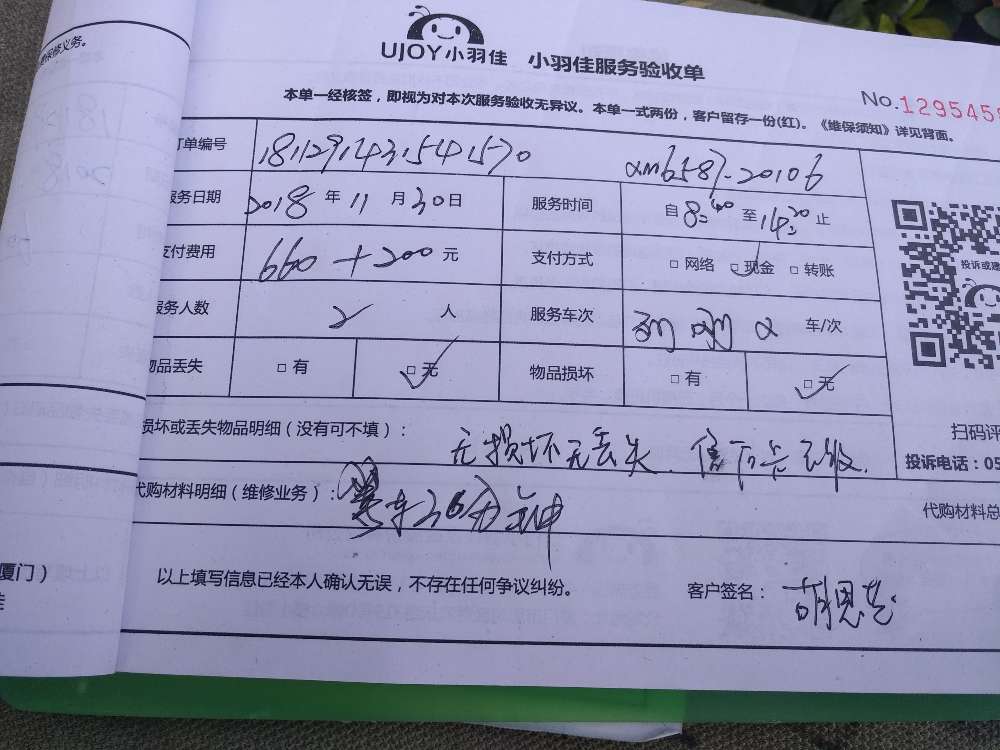 保修义务。
UJOY小羽佳 小羽佳服务验收单
No.129545
本单一经核签，即视为对本次服务验收无异议。本单一式两份，客户留存一份(红)。《维保须知》详见背面。
订单编号 18112914315541570 XM6587-20106
服务日期 2018 年 11 月 30 日 服务时间 自 8:00 至 14:20 止
支付费用 660+200 元 支付方式 □ 网络 □ 现金 □ 转账
服务人数 2 人 服务车次 车/次
物品丢失 □ 有 □ 无 物品损坏 □ 有 □ 无
损坏或丢失物品明细（没有可不填）： 无损坏无丢失
代购材料明细（维修业务）： 30分钟
以上填写信息已经本人确认无误，不存在任何争议纠纷。 客户签名：
投诉或建
扫码评
投诉电话：05
代购材料总
厦门）